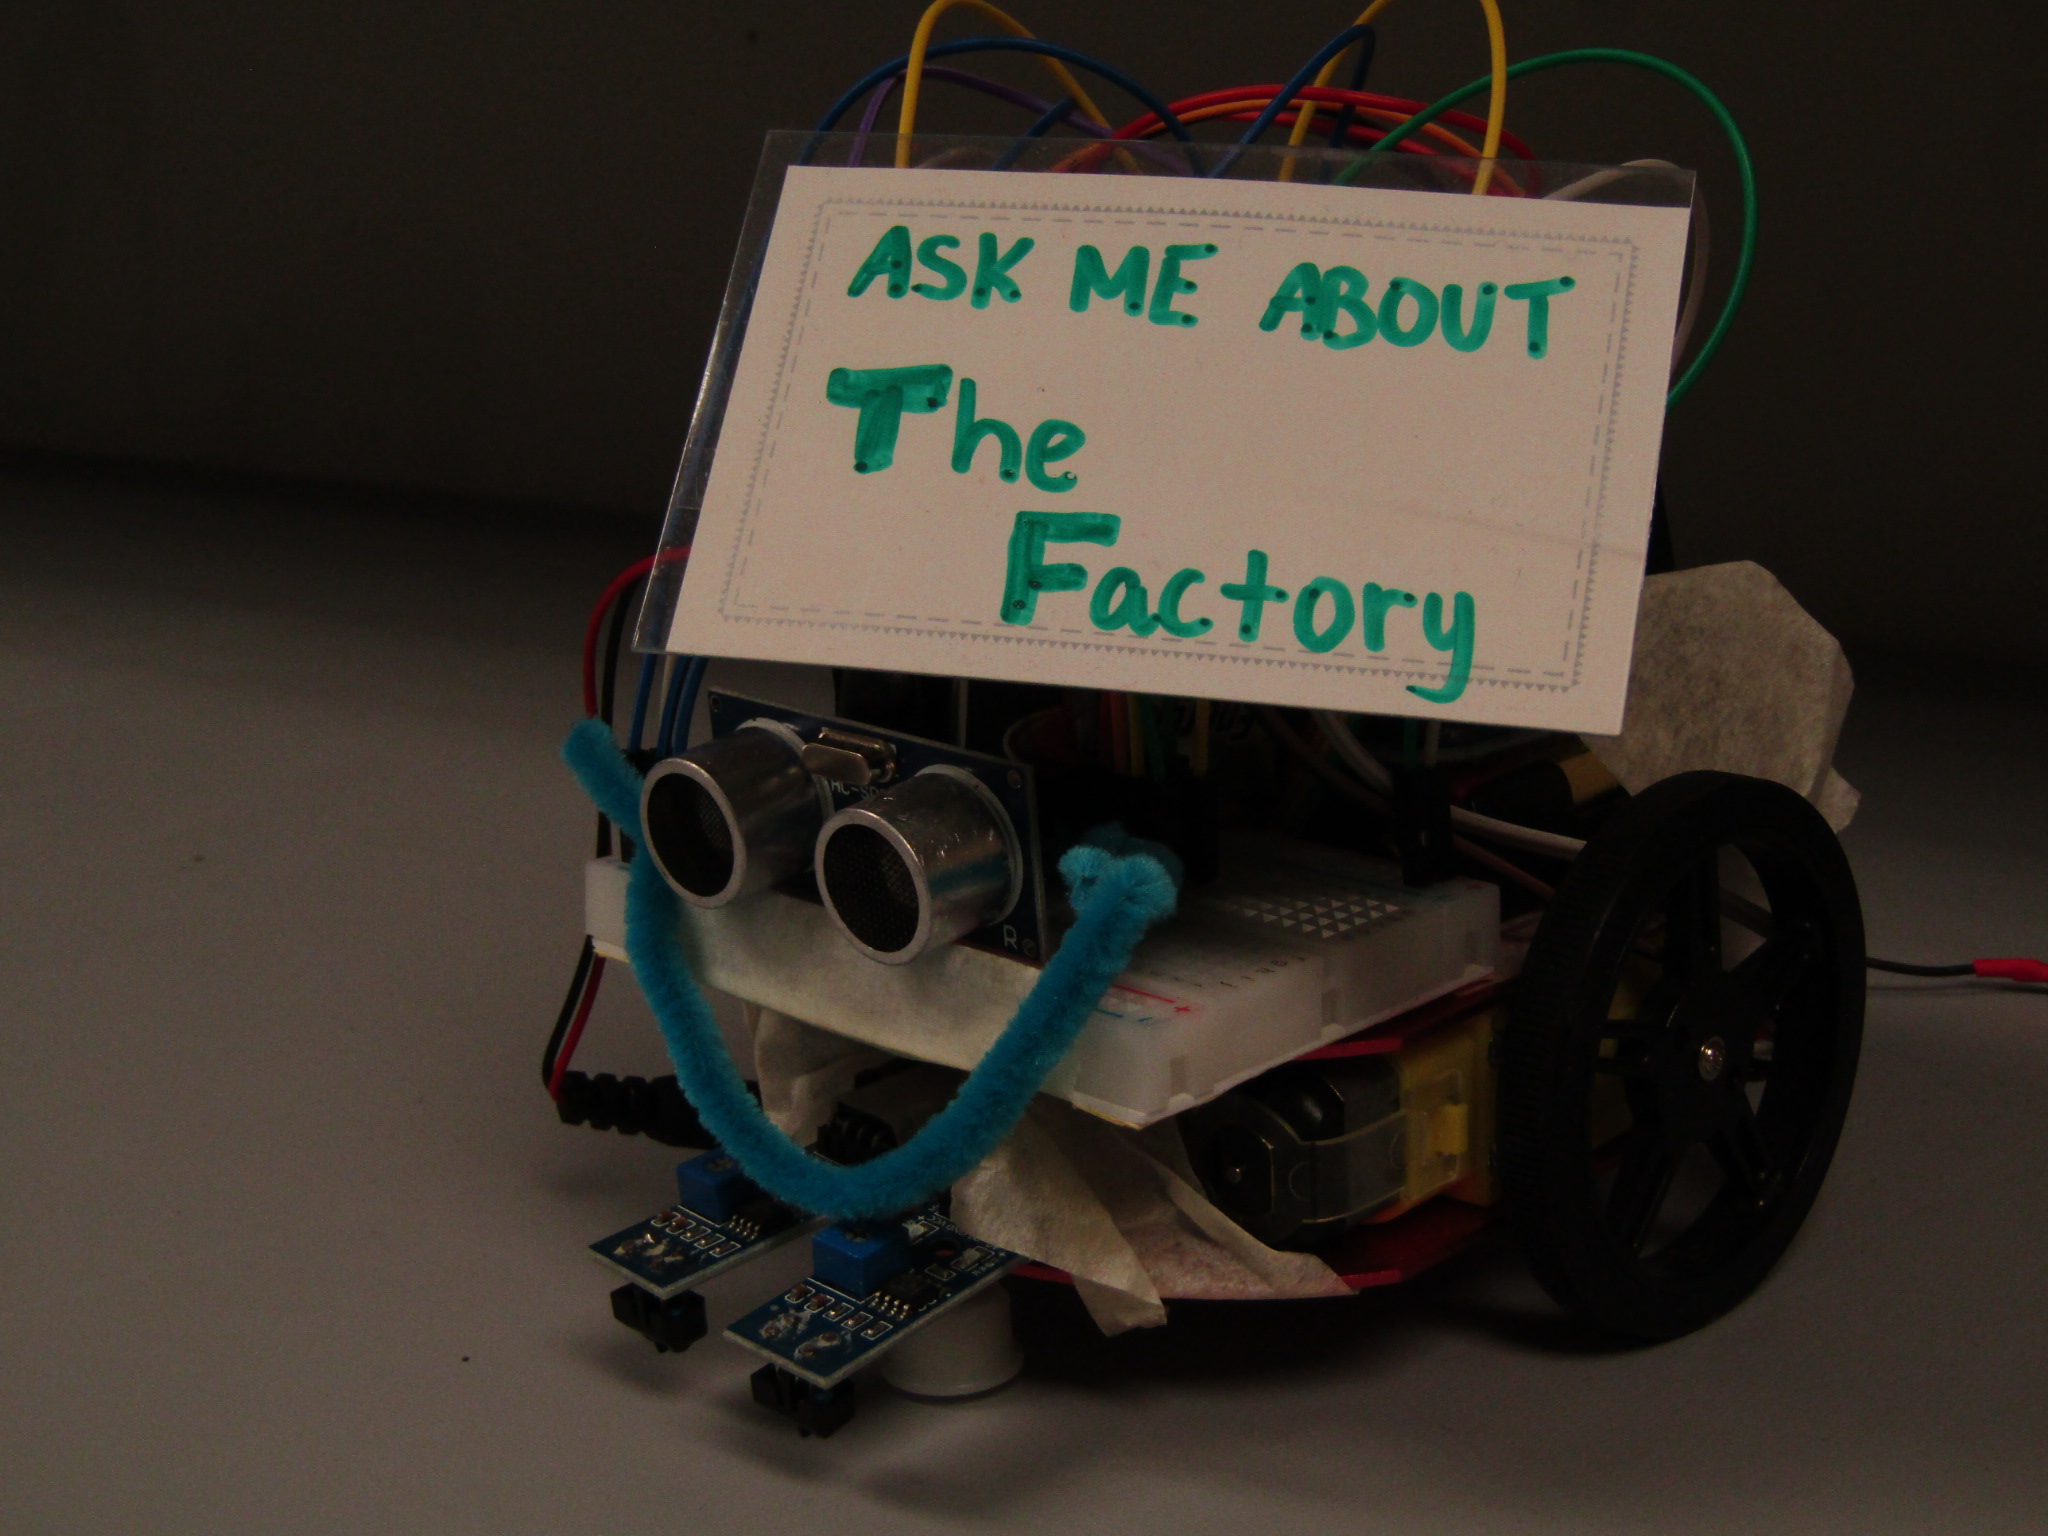 ASK ME ABOUT
The
Factory
HC-SR
R